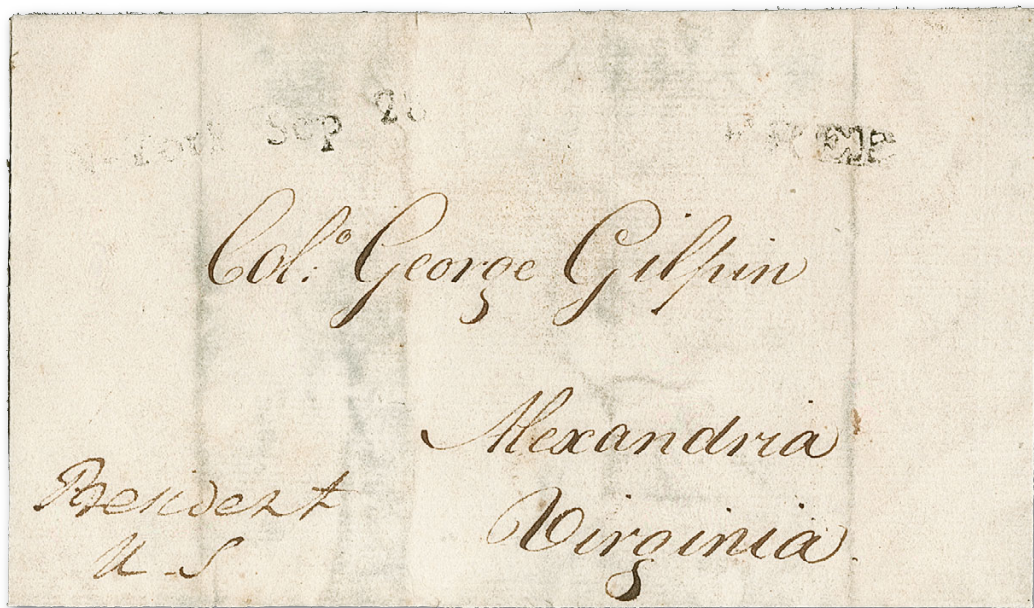 York Sep 2
FREE
Col.º George Gilpin
Alexandria
Virginia.
President
U.S